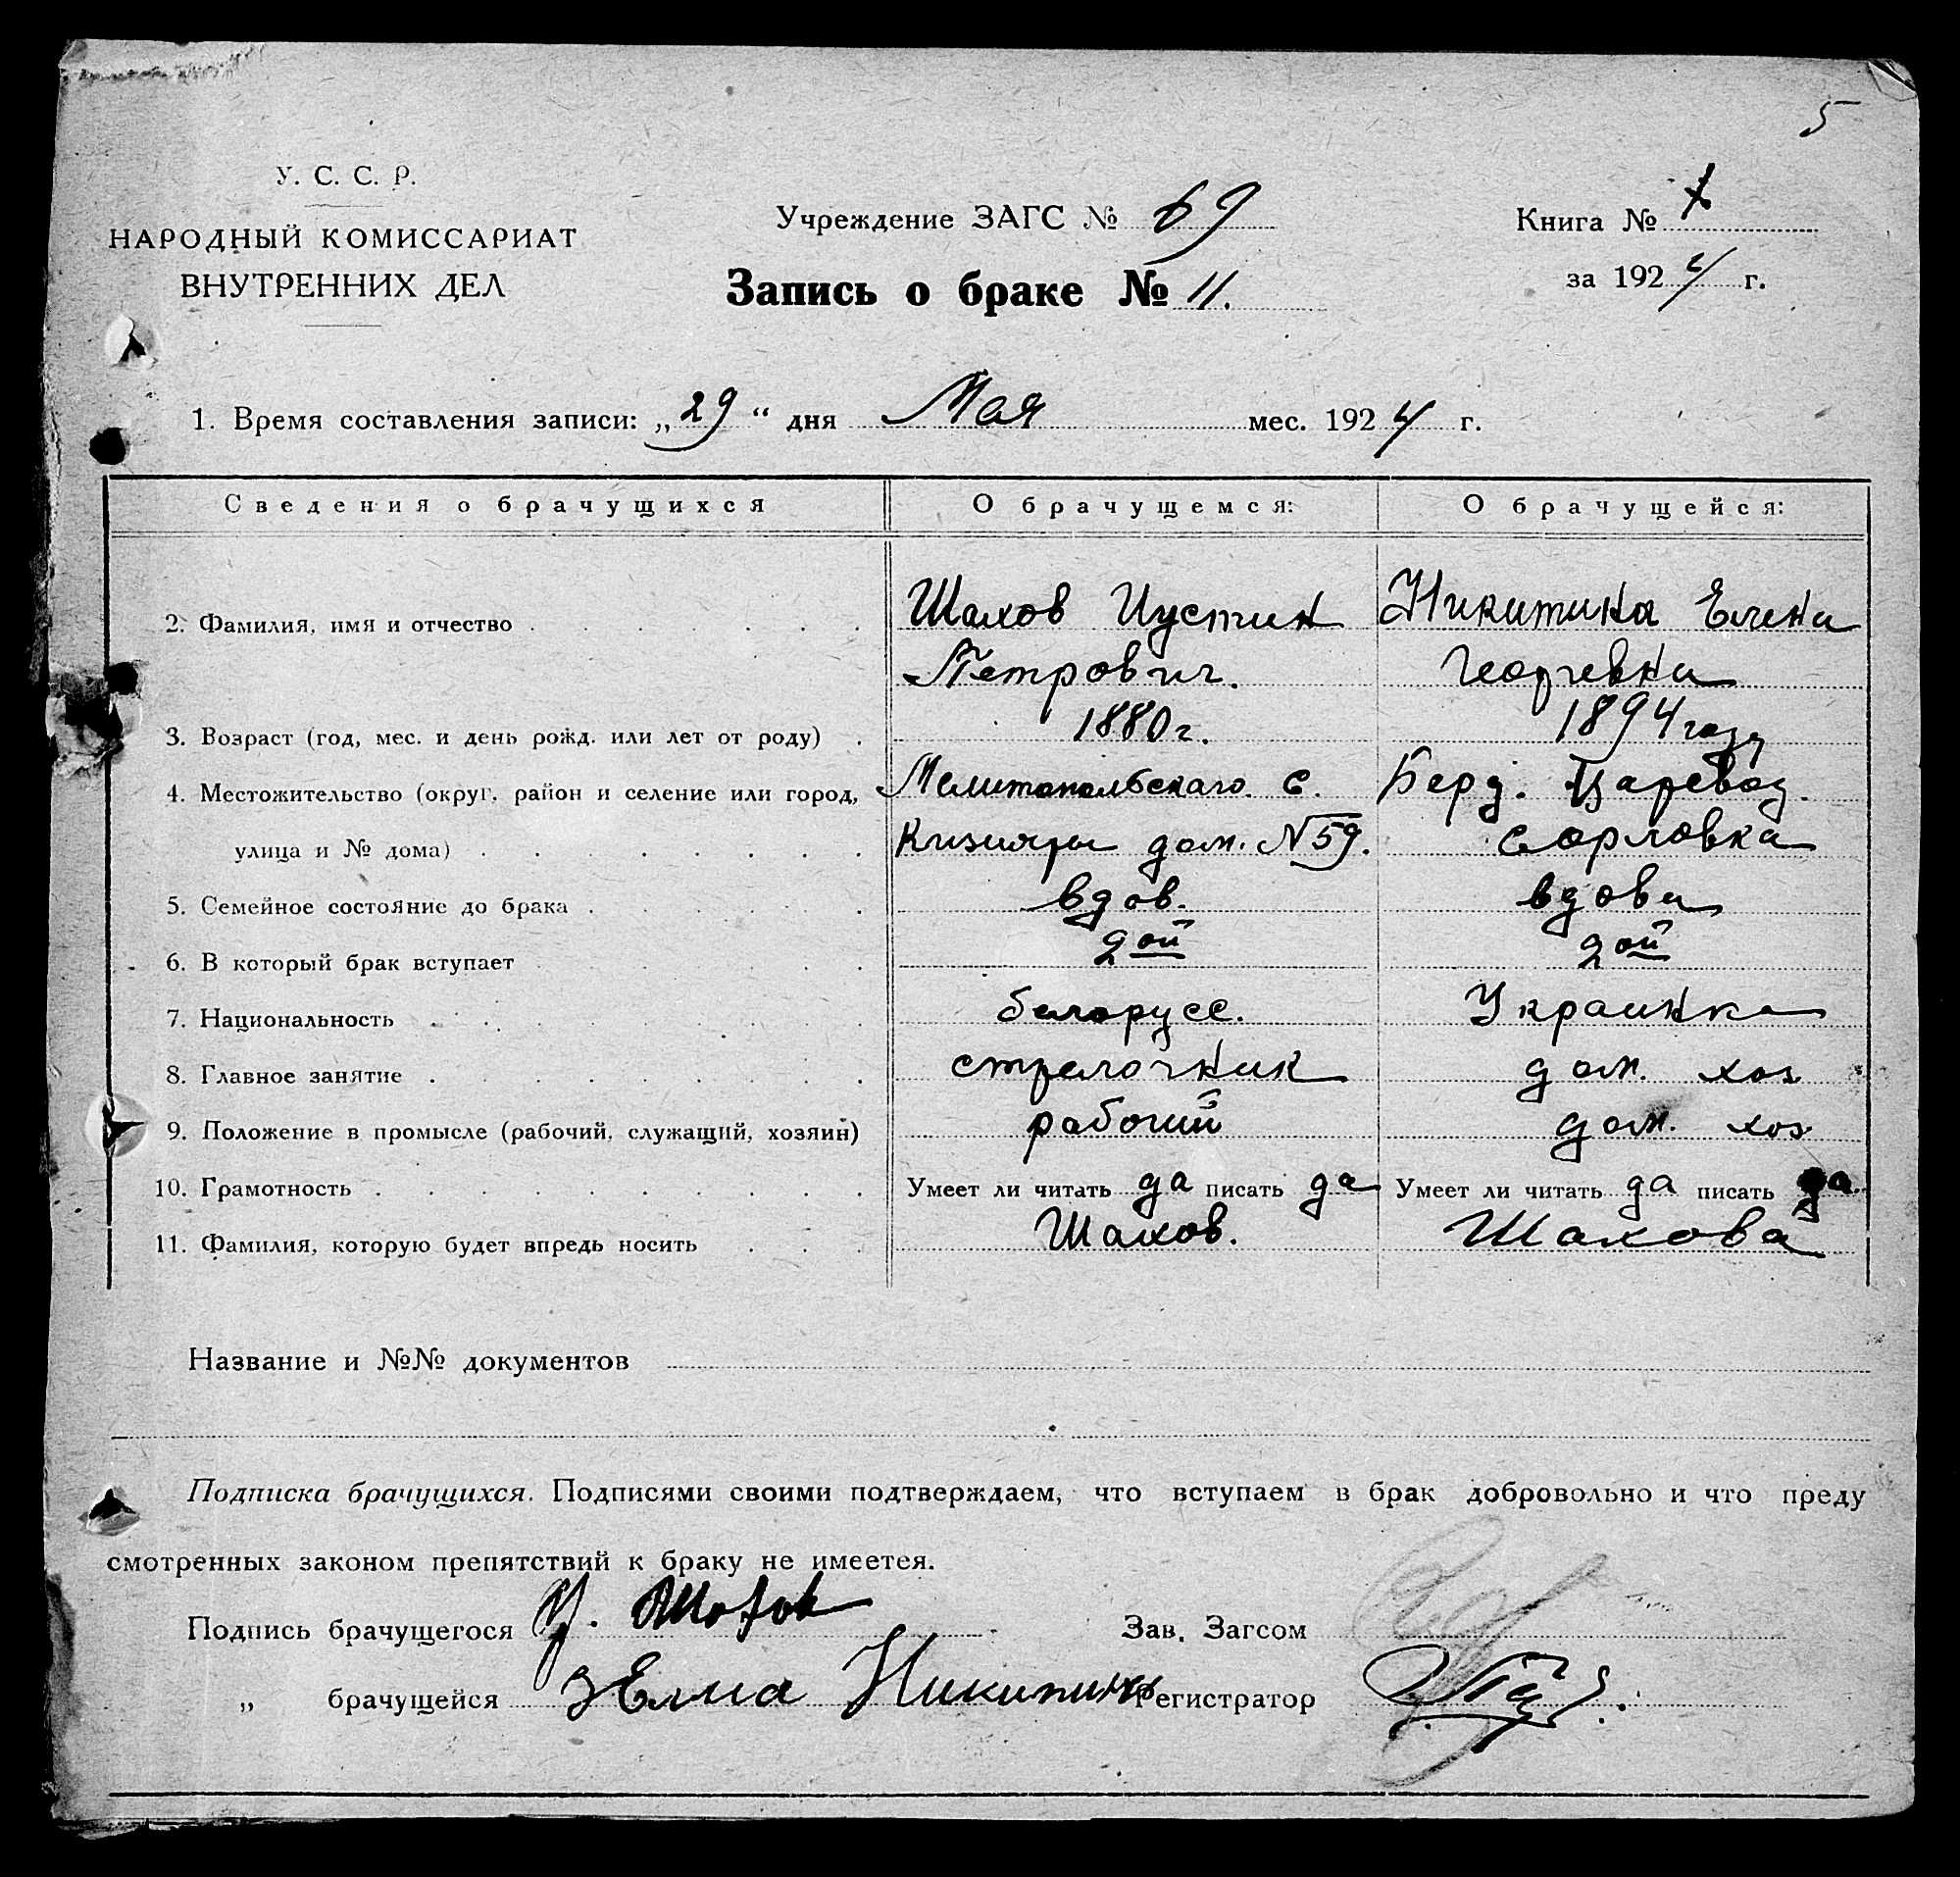 5
У. С. С. Р.
НАРОДНЫЙ КОМИССАРИАТ
ВНУТРЕННИХ ДЕЛ
Учреждение ЗАГС № 69
Запись о браке № 11.
Книга №
за 1924 г.
1. Время составления записи: „29“ дня Мая мес. 1924 г.
Сведения о брачущихся О брачущемся: О брачущейся:
2. Фамилия, имя и отчество Шахов Иустин Никитина Елена
Петрович. Георгевна
3. Возраст (год, мес. и день рожд. или лет от роду) 1880 г. 1894 году
4. Местожительство (округ, район и селение или город, Мелитопольскаго с. Берд. Царевод.
улица и № дома) Кизияры дом. N 59. с Орловка
5. Семейное состояние до брака вдов. вдова
6. В который брак вступает 2ой 2ой
7. Национальность белорусс. Украинка
8. Главное занятие стрелочник дом. хоз
9. Положение в промысле (рабочий, служащий, хозяин) рабочий дом. хоз
10. Грамотность Умеет ли читать да писать да Умеет ли читать да писать да.
11. Фамилия, которую будет впредь носить Шахов. Шахова
Название и №№ документов
Подписка брачущихся. Подписями своими подтверждаем, что вступаем в брак добровольно и что преду
смотренных законом препятствий к браку не имеетея.
Подпись брачущегося И. Шахов Зав. Загсом
„ брачущейся Никитина Регистратор